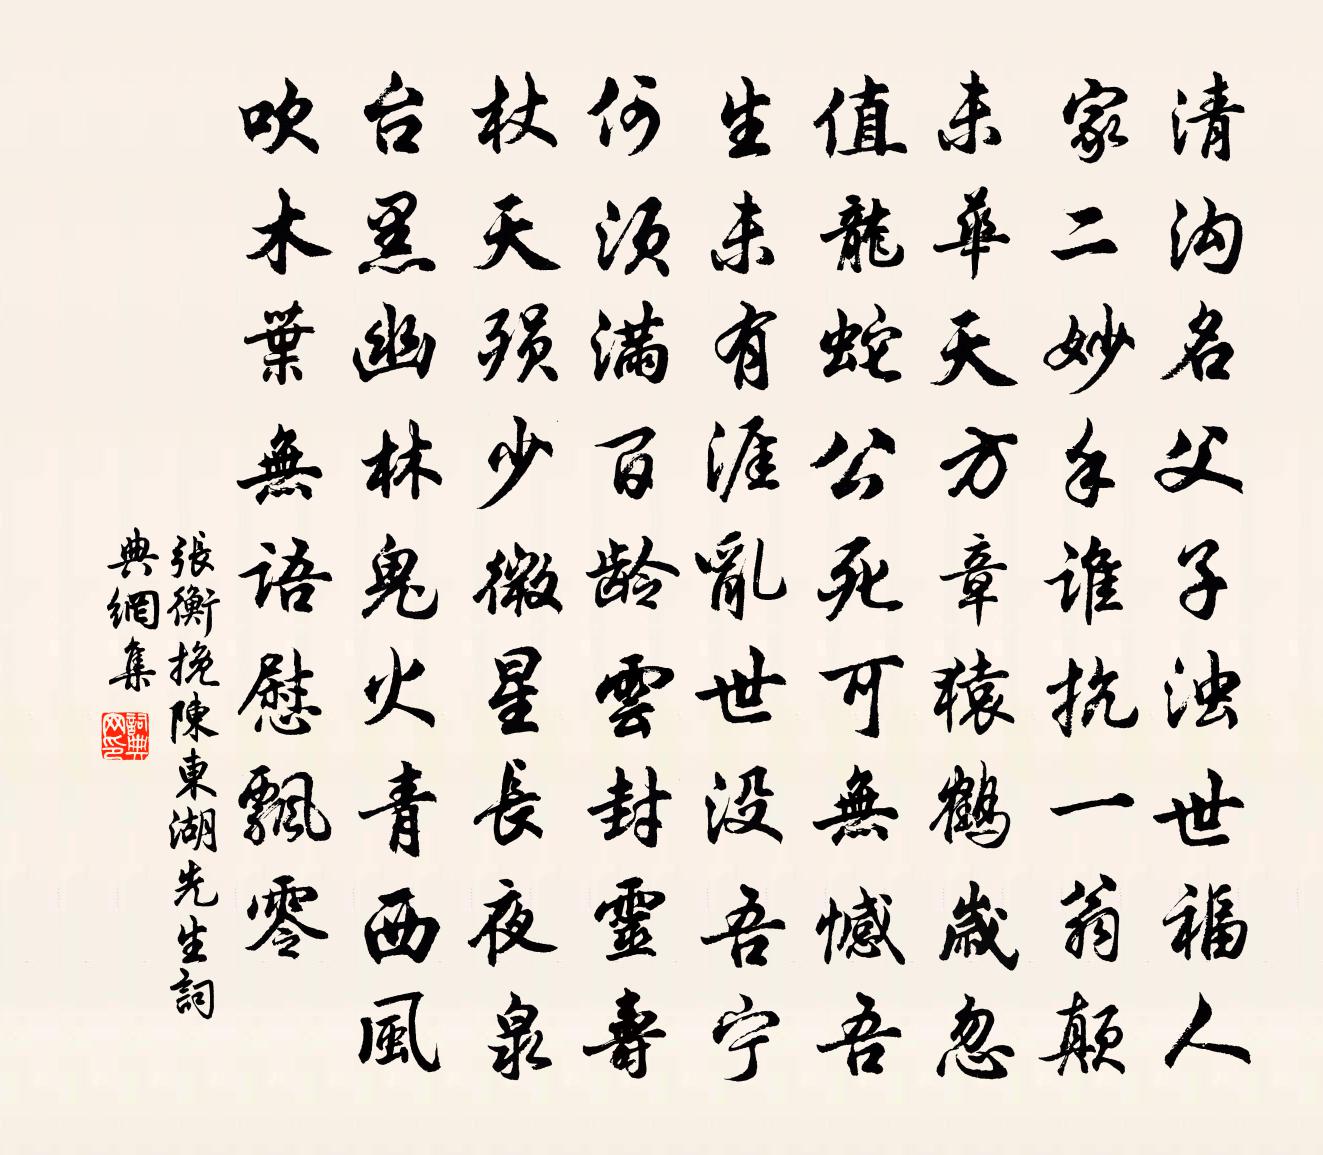 清沟名父子浊世福人
家二妙手谁抗一翁颠
未華天方章猿鶴歳忽
值龍蛇公死可無憾吾
生未有涯亂世没吾宁
何须满百龄雲封靈壽
杖天殒少微星長夜泉
台黑幽林鬼火青西風
吹木葉無语慰飄零
張衡挽陳東湖先生詞
典網集
詞典网印